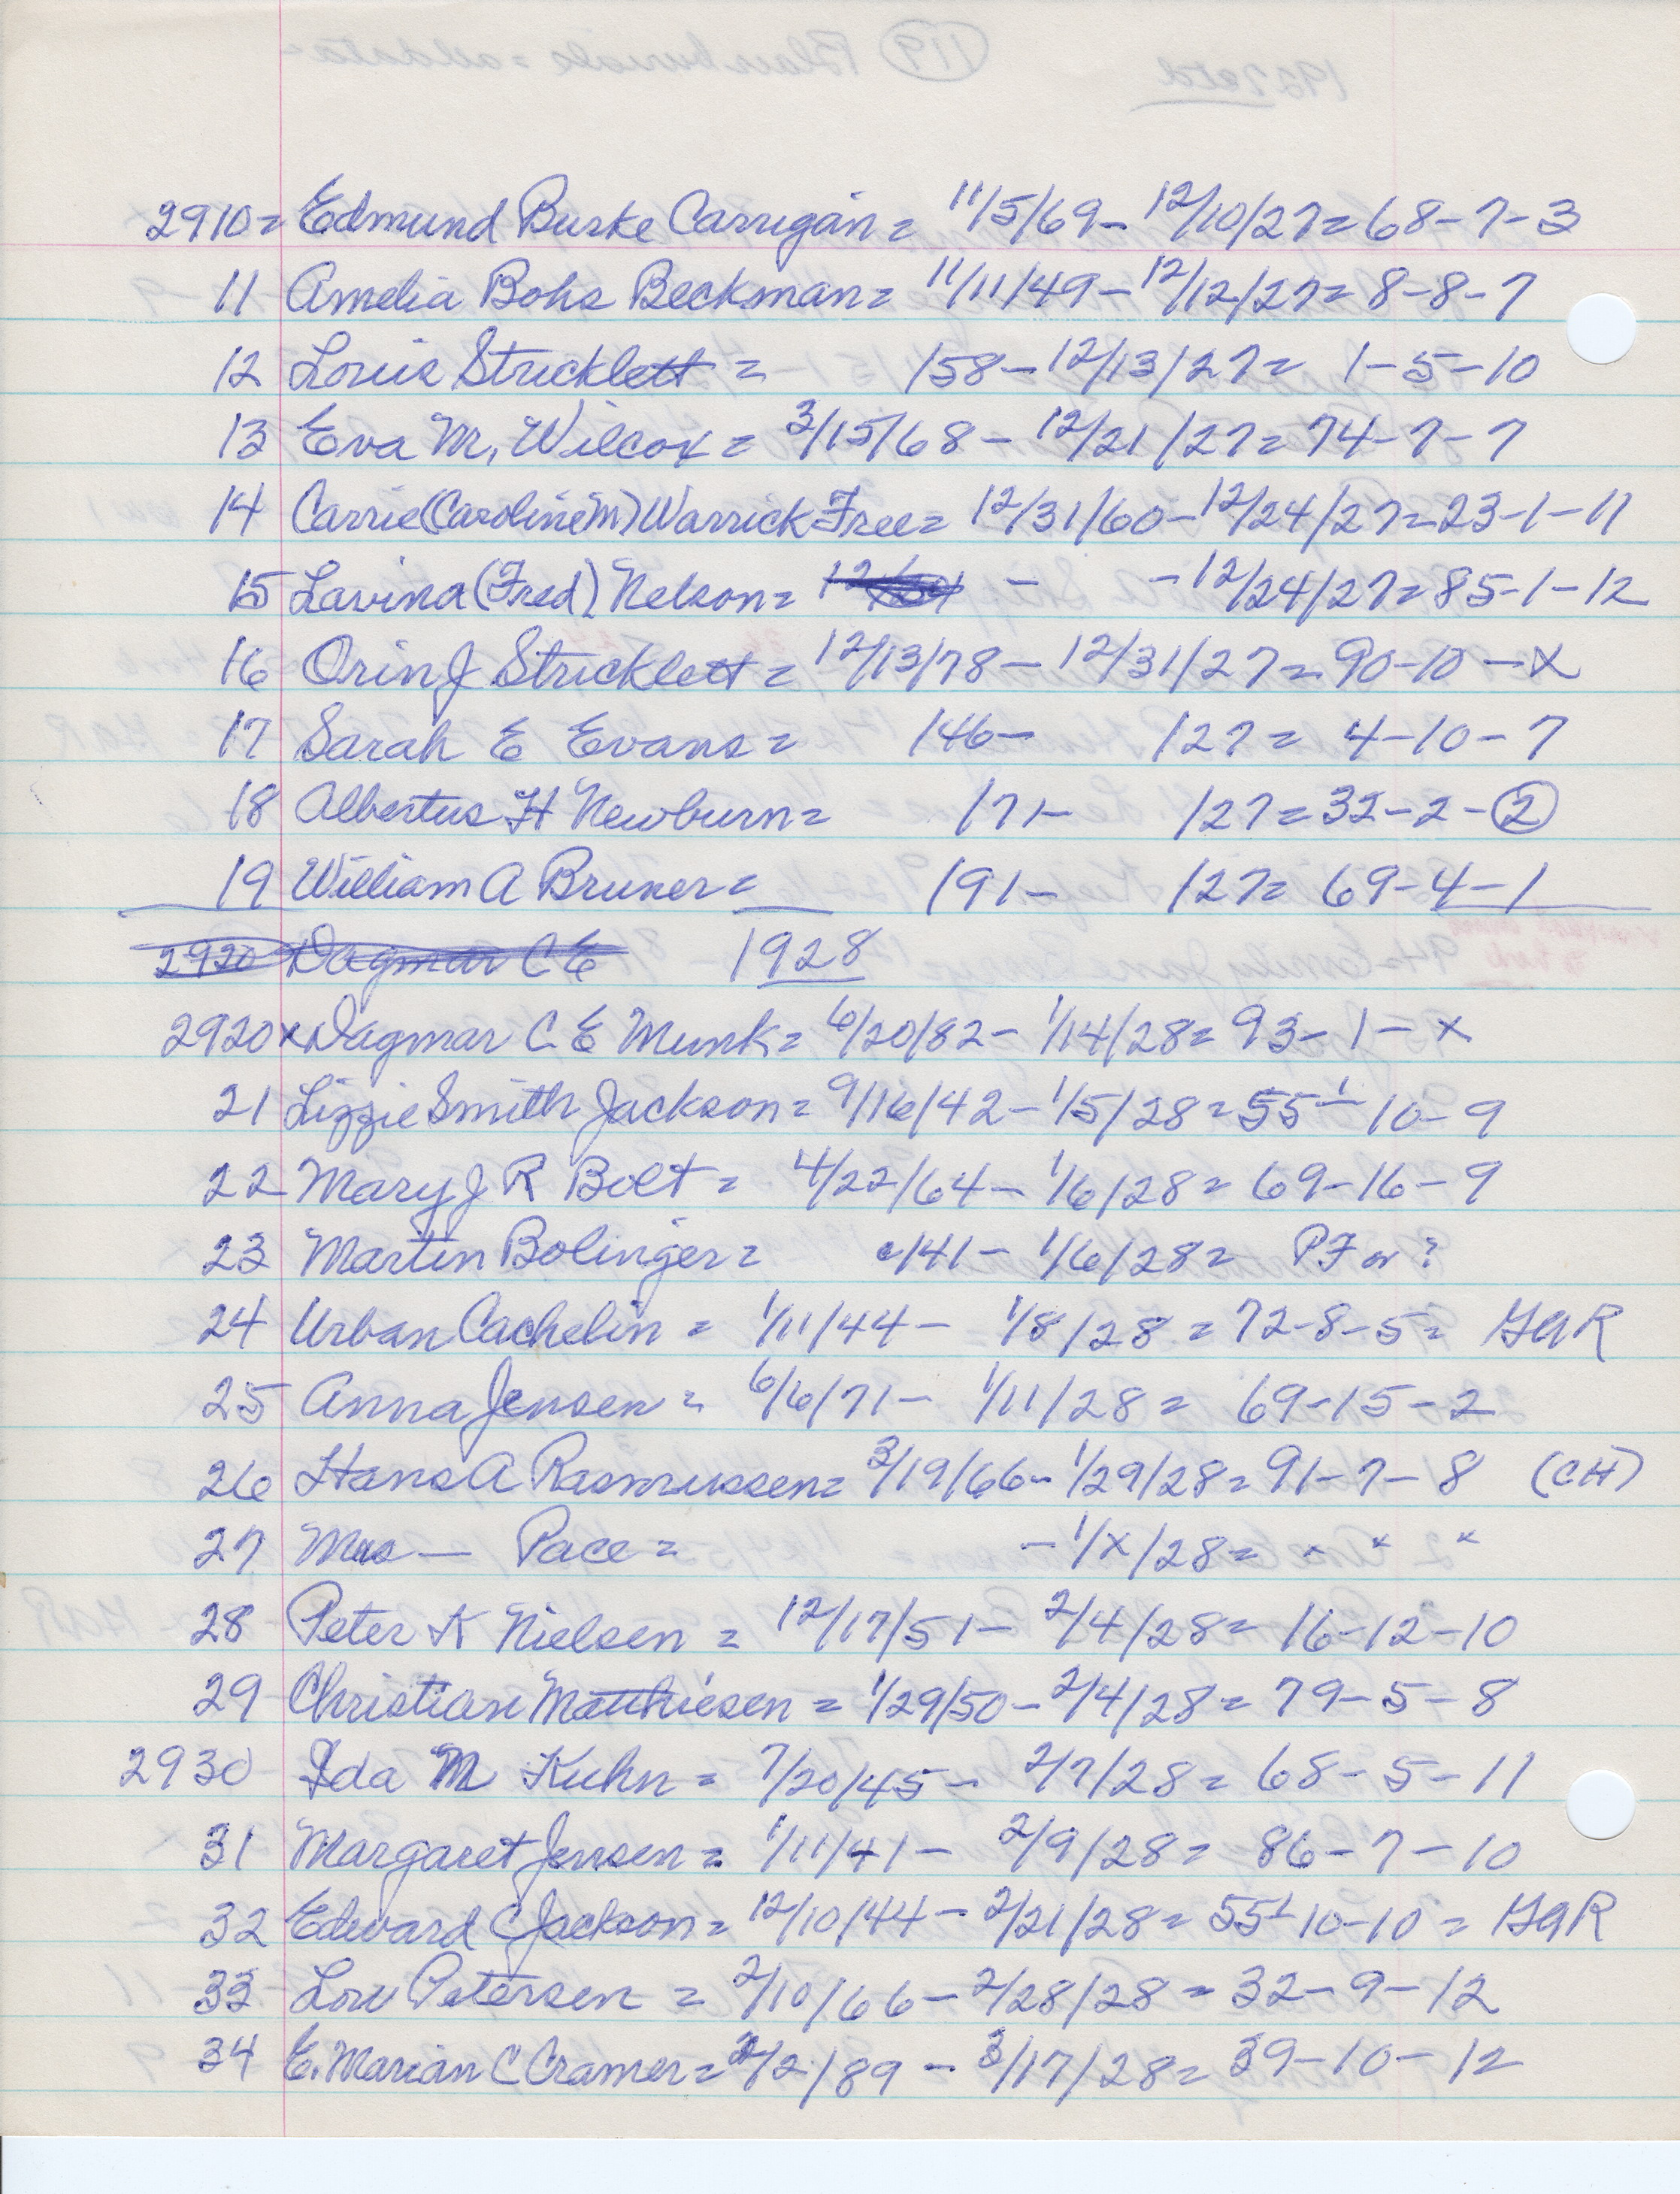 2910= Edmund Burke Carrigan = 11/5/69 - 12/10/27 = 68-7-3
11 Amelia Bohs Beckman = 11/11/49 - 12/12/27 = 8-8-7
12 Louis Stricklett = /58 - 12/13/27 = 1-5-10
13 Eva M. Wilcox = 3/15/68 - 12/21/27 = 74-7-7
14 Carrie (Caroline M) Warrick Free = 12/31/60 - 12/24/27 = 23-1-11
15 Lavina (Fred) Nelson = - - 12/24/27 = 85-1-12
16 Orin J Stricklett = 12/13/78 - 12/31/27 = 90-10-X
17 Sarah E Evans = /46 - /27 = 4-10-7
18 Albertus H Newburn = /71 - /27 = 32-2-2
19 William A Bruner = /91 - /27 = 69-4-1
2920 Dagmar C E 1928
2920 x Dagmar C. E Munk = 6/20/82 - 1/14/28 = 93-1-x
21 Lizzie Smith Jackson = 9/16/42 - 1/5/28 = 55 1-10-9
22 Mary J R Bolt = 4/22/64 - 1/6/28 = 69-16-9
23 Martin Bolinger = c/41 - 1/6/28 = PF or ?
24 Urban Cachelin = 1/11/44 - 1/8/28 = 72-8-5 = GAR
25 Anna Jensen = 6/6/71 - 1/11/28 = 69-15-2
26 Hans A Rasmussen = 3/19/66 - 1/29/28 = 91-7-8 (CH)
27 Mrs — Pace = - 1/X/28 = " " "
28 Peter K Nielsen = 12/17/51 - 2/4/28 = 16-12-10
29 Christian Matthiesen = 1/29/50 - 2/4/28 = 79-5-8
2930 Ida M Kuhn = 7/20/45 - 2/7/28 = 68-5-11
31 Margaret Jensen = 1/11/41 - 2/9/28 = 86-7-10
32 Edward C Jackson = 12/10/44 - 2/21/28 = 55 1-10-10 = GAR
33 Low Petersen = 2/10/66 - 2/28/28 = 32-9-12
34 E. Marian C Cramer = 2/2/89 - 3/17/28 = 39-10-12